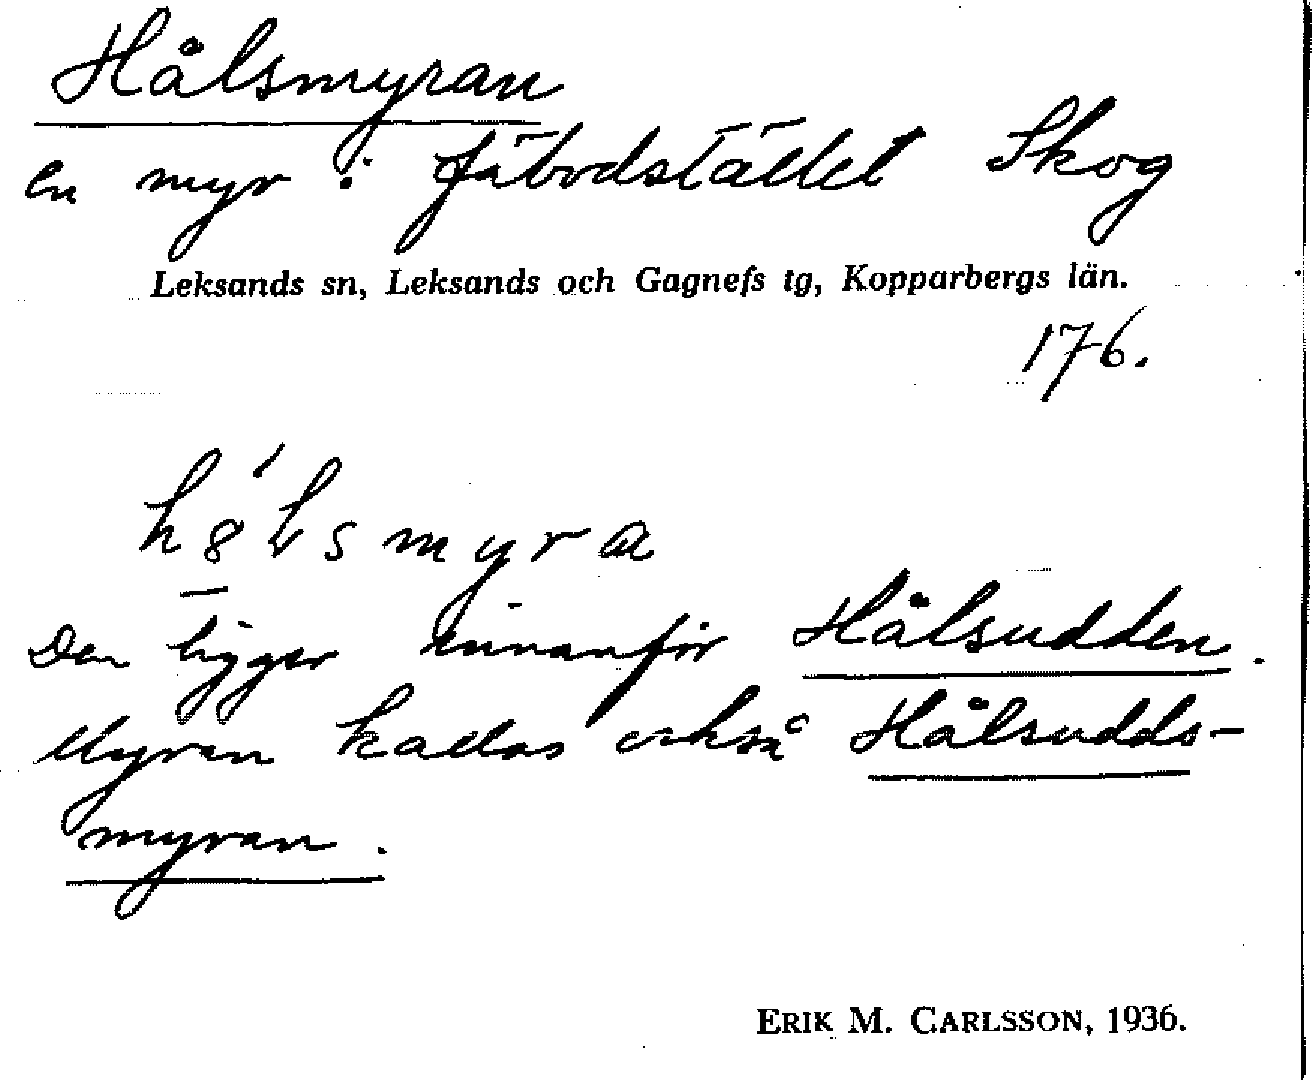 Hålsmyran
en myr i fäbodstället Skog
Leksands sn, Leksands och Gagnefs tg, Kopparbergs län.
176.
Den ligger innanför Hålsudden.
Myran kallas också Hålsudds-
myran.
ERIK M. CARLSSON, 1936.